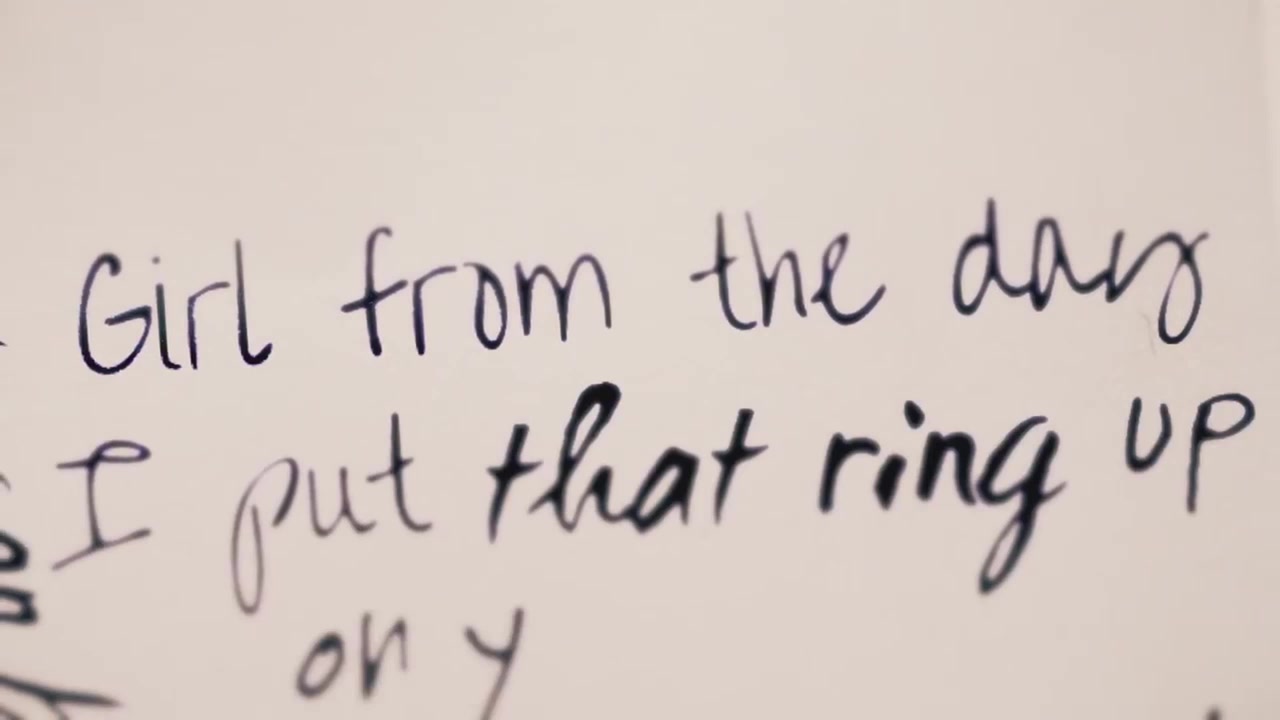 Girl from the day
I put that ring up
on y